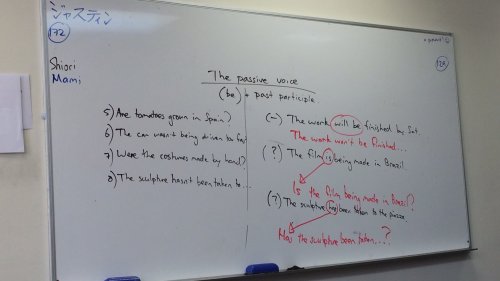 ジャスティン
172
Shiori
Mami
128
The passive voice
(be) + past participle
5) Are tomatoes grown in Spain?
6) The car wasn't being driven too fast
7) Were the costumes made by hand?
8) The sculpture hasn't been taken to...
(-) The work will be finished by Sat.
The work won't be finished...
(?) The film is being made in Brazil
Is the film being made in Brazil?
(?) The sculpture has been taken to the piazza.
Has the sculpture been taken...?